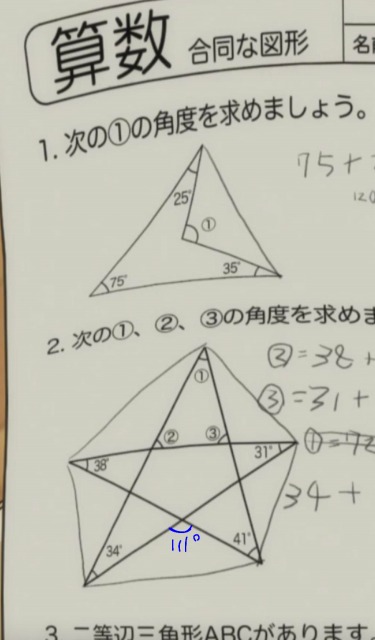 算数 合同な図形
名
1. 次の①の角度を求めましょう。
75+
25°
①
75°
35°
2. 次の①、②、③の角度を求め
①
②=38+
③=31+
② ③
38° 31°
34+
111°
34° 41°
3. 二等辺三角形ABCがあります